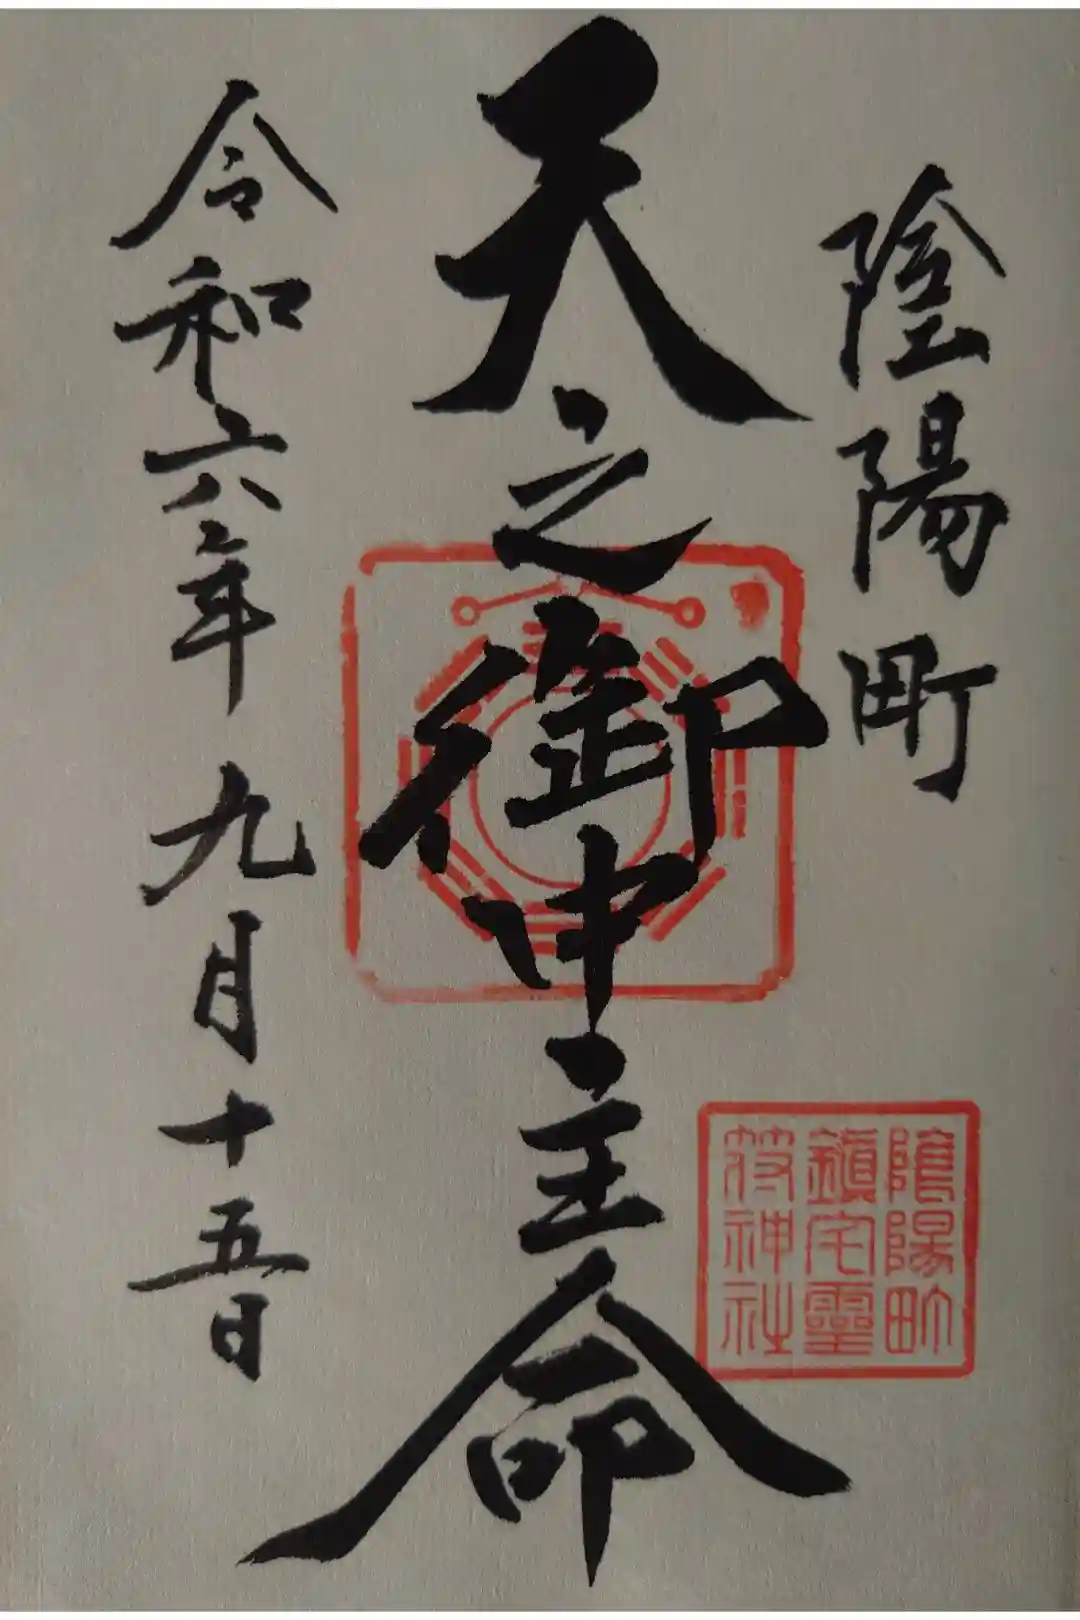 陰陽町
天之御中主命
令和六年 九月十五日
陰陽町
鎮宅霊
符神社